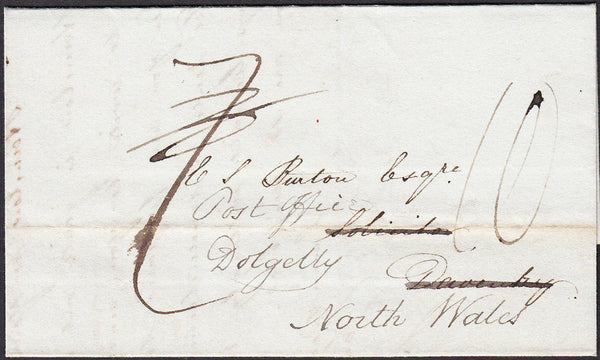 7
10
E S Burton Esqre.
Post Office
Solicitor
Dolgelly
Daventry
North Wales